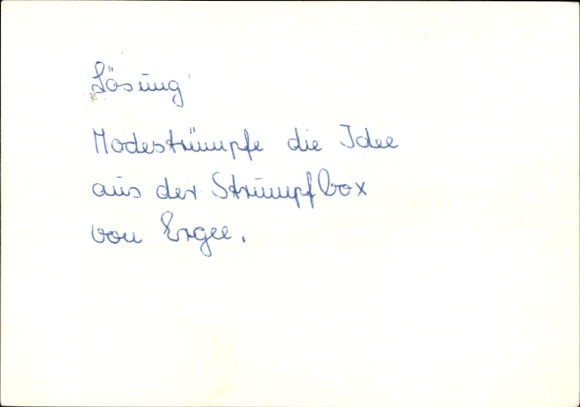 Lösung
Modestrümpfe die Idee
aus der Strumpfbox
von Ergee.